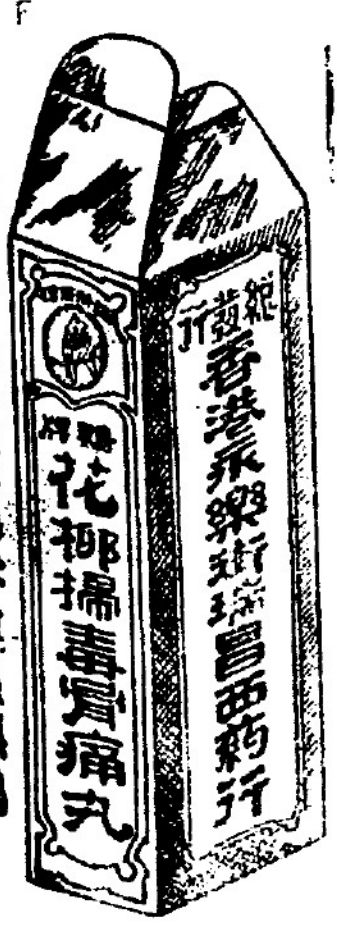 F
牌
花柳掃毒骨痛丸
總發行
香港永樂街瑞昌西药行